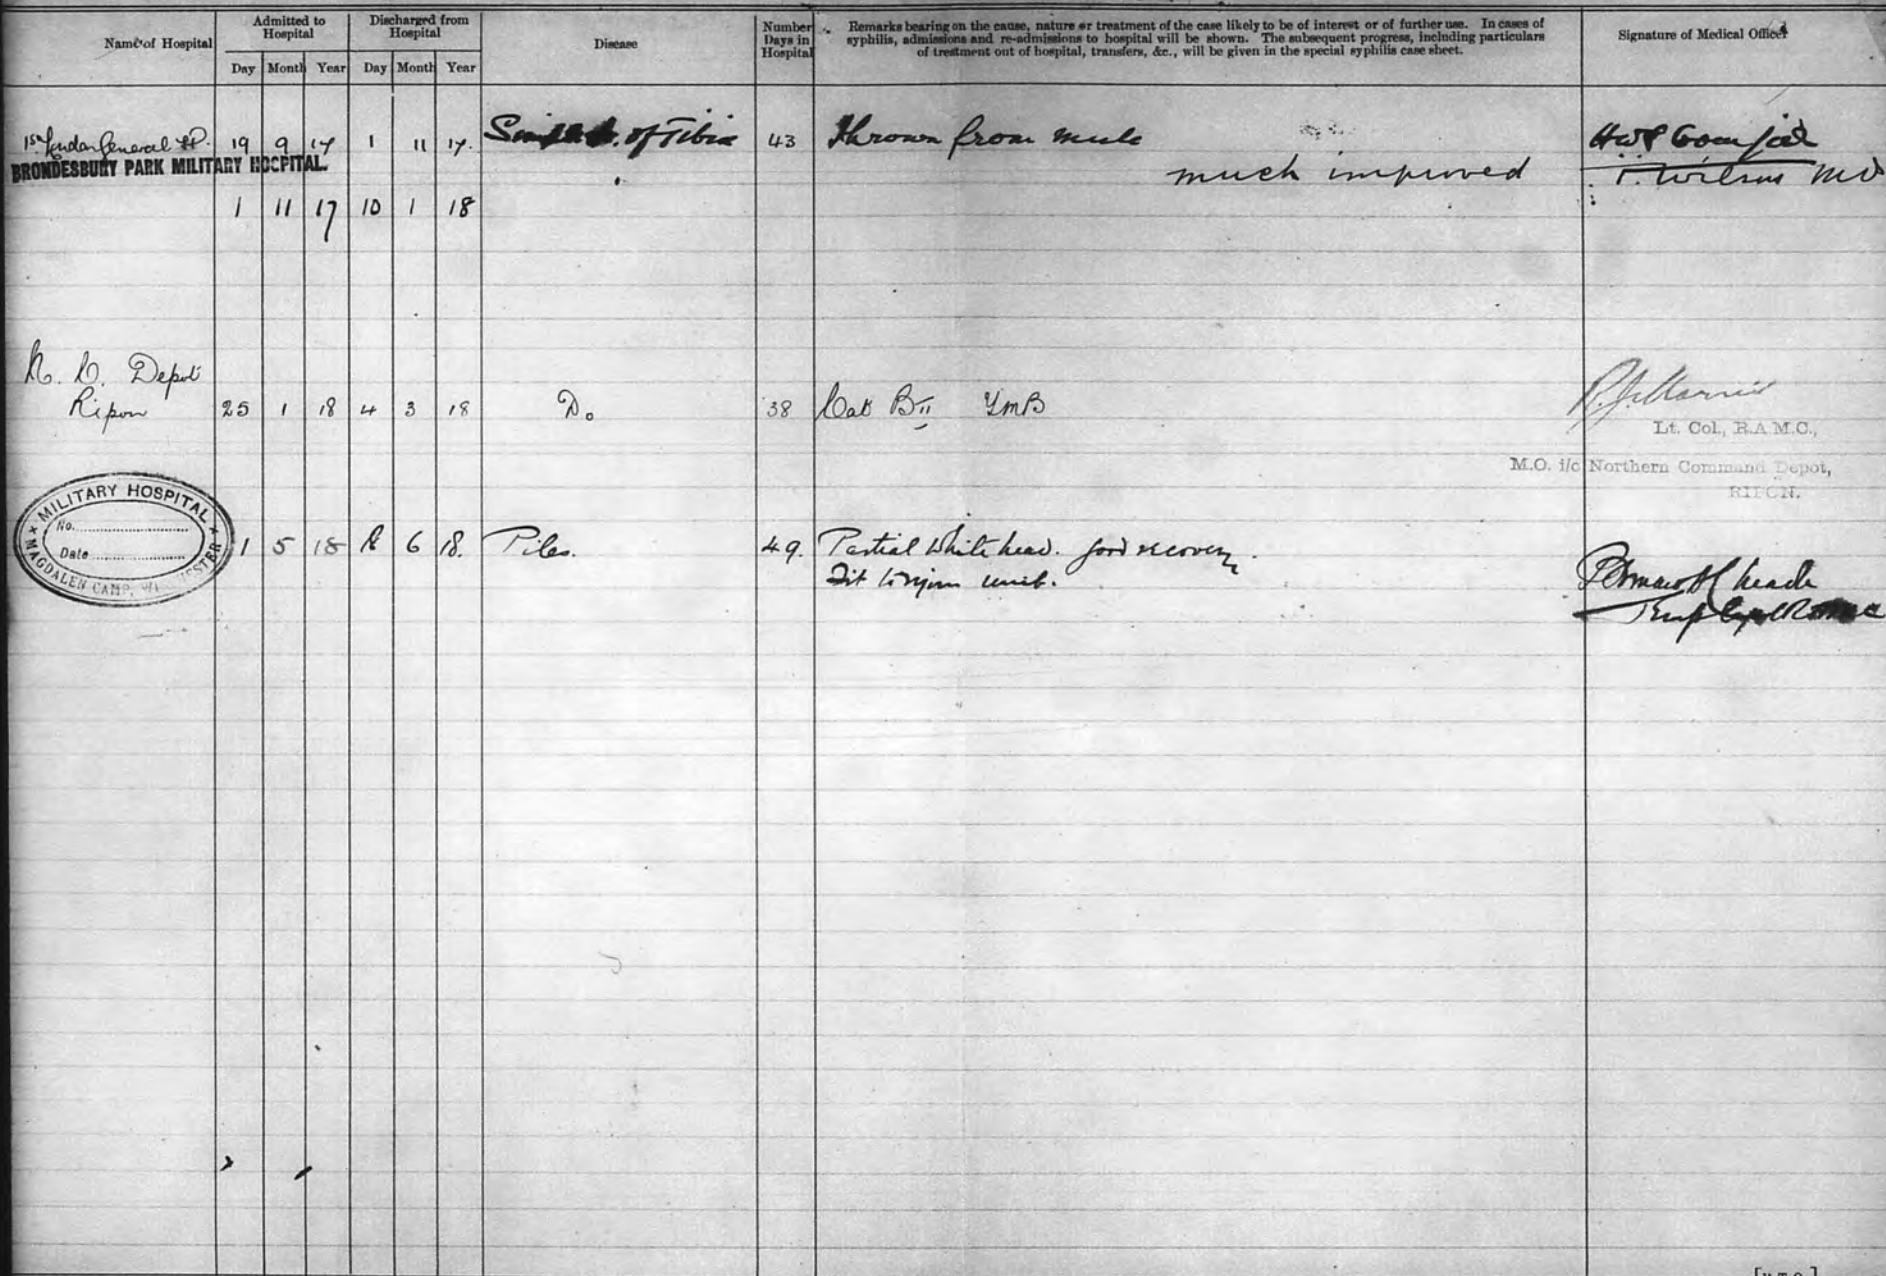 Name of Hospital
Admitted to Hospital
Day Month Year
Discharged from Hospital
Day Month Year
Disease
Number Days in Hospital
Remarks bearing on the cause, nature or treatment of the case likely to be of interest or of further use. In cases of
syphilis, admissions and re-admissions to hospital will be shown. The subsequent progress, including particulars
of treatment out of hospital, transfers, &c., will be given in the special syphilis case sheet.
Signature of Medical Officer
1st London General 19 9 17 1 11 17. of Tibia 43 Thrown from mule
BRONDESBURY PARK MILITARY HOSPITAL.
much improved Wilson MD
1 11 17 10 1 18
Depot
Ripon 25 1 18 4 3 18 Do 38 Cat BII
Lt. Col., R.A.M.C.,
M.O. i/c Northern Command Depot,
RIPON.
MILITARY HOSPITAL
No.
Date
MAGDALEN CAMP,
1 5 18 6 18. Piles. 49. Partial Whitehead. Good recovery.
Fit to rejoin unit.